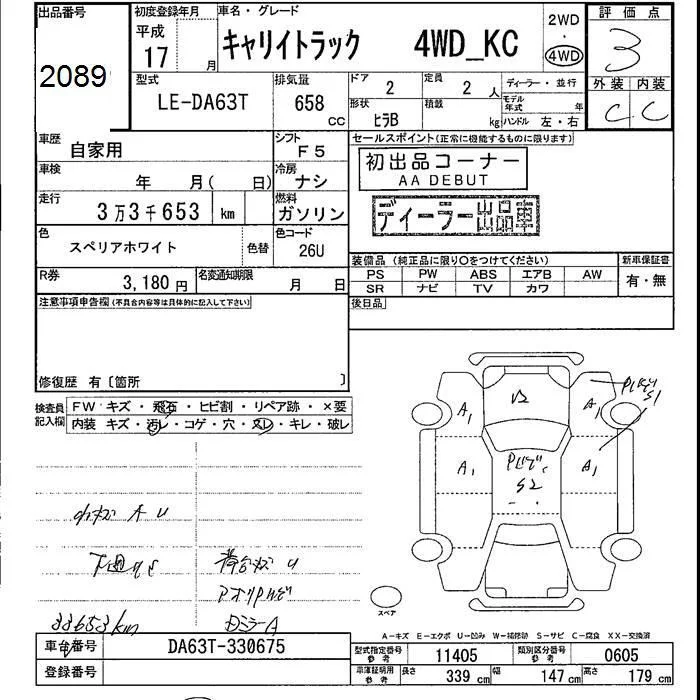 出品番号
2089
初度登録年月
平成
17 月
車名・グレード
キャリイトラック 4WD_KC
2WD
・
4WD
評価点
3
外装 内装
C C
型式
LE-DA63T
排気量
658
CC
ドア
2
定員
2 人
ディーラー・並行
形状
ヒラB
積載
kg
モデル年式 年
ハンドル 左・右
車歴
自家用
シフト
F5
セールスポイント(正常に機能するものに限ります)
初出品コーナー
AA DEBUT
ディーラー出品車
車検
年 月( 日)
冷房
ナシ
走行
3万3千653 km
燃料
ガソリン
色
スペリアホワイト
色替
色コード
26U
装備品(純正品に限り○をつけてください)
新車保証書
PS PW ABS エアB AW
有・無
SR ナビ TV カワ
R券
3,180円
名変通知期限
月 日
後日品
注意事項申告欄(不具合内容等は具体的に記入して下さい)
修復歴 有〔箇所 〕
検査員記入欄
FW キズ・飛石・ヒビ割・リペア跡・×要
内装 キズ・汚レ・コゲ・穴・スレ・キレ・破レ
A1
A1
A1
A1
S1
S2
小キズ A U
下廻りS
荷台キズ U
33653km
DミラーA
スペア
A-キズ E-エクボ U-凹み W-補修跡 S-サビ C-腐食 XX-交換済
車台番号
DA63T-330675
登録番号
型式指定番号
参考
11405
類別区分番号
参考
0605
車庫証明用
参考
長さ
339 cm
幅
147 cm
高さ
179 cm